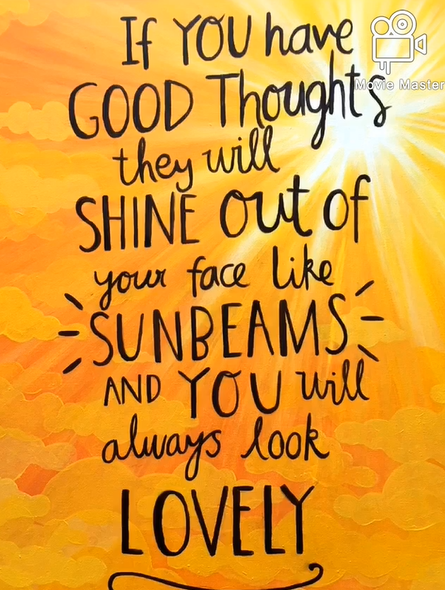 If YOU have
GOOD Thoughts
they will
SHINE out of
your face like
SUNBEAMS
AND YOU will
always look
LOVELY
Movie Master